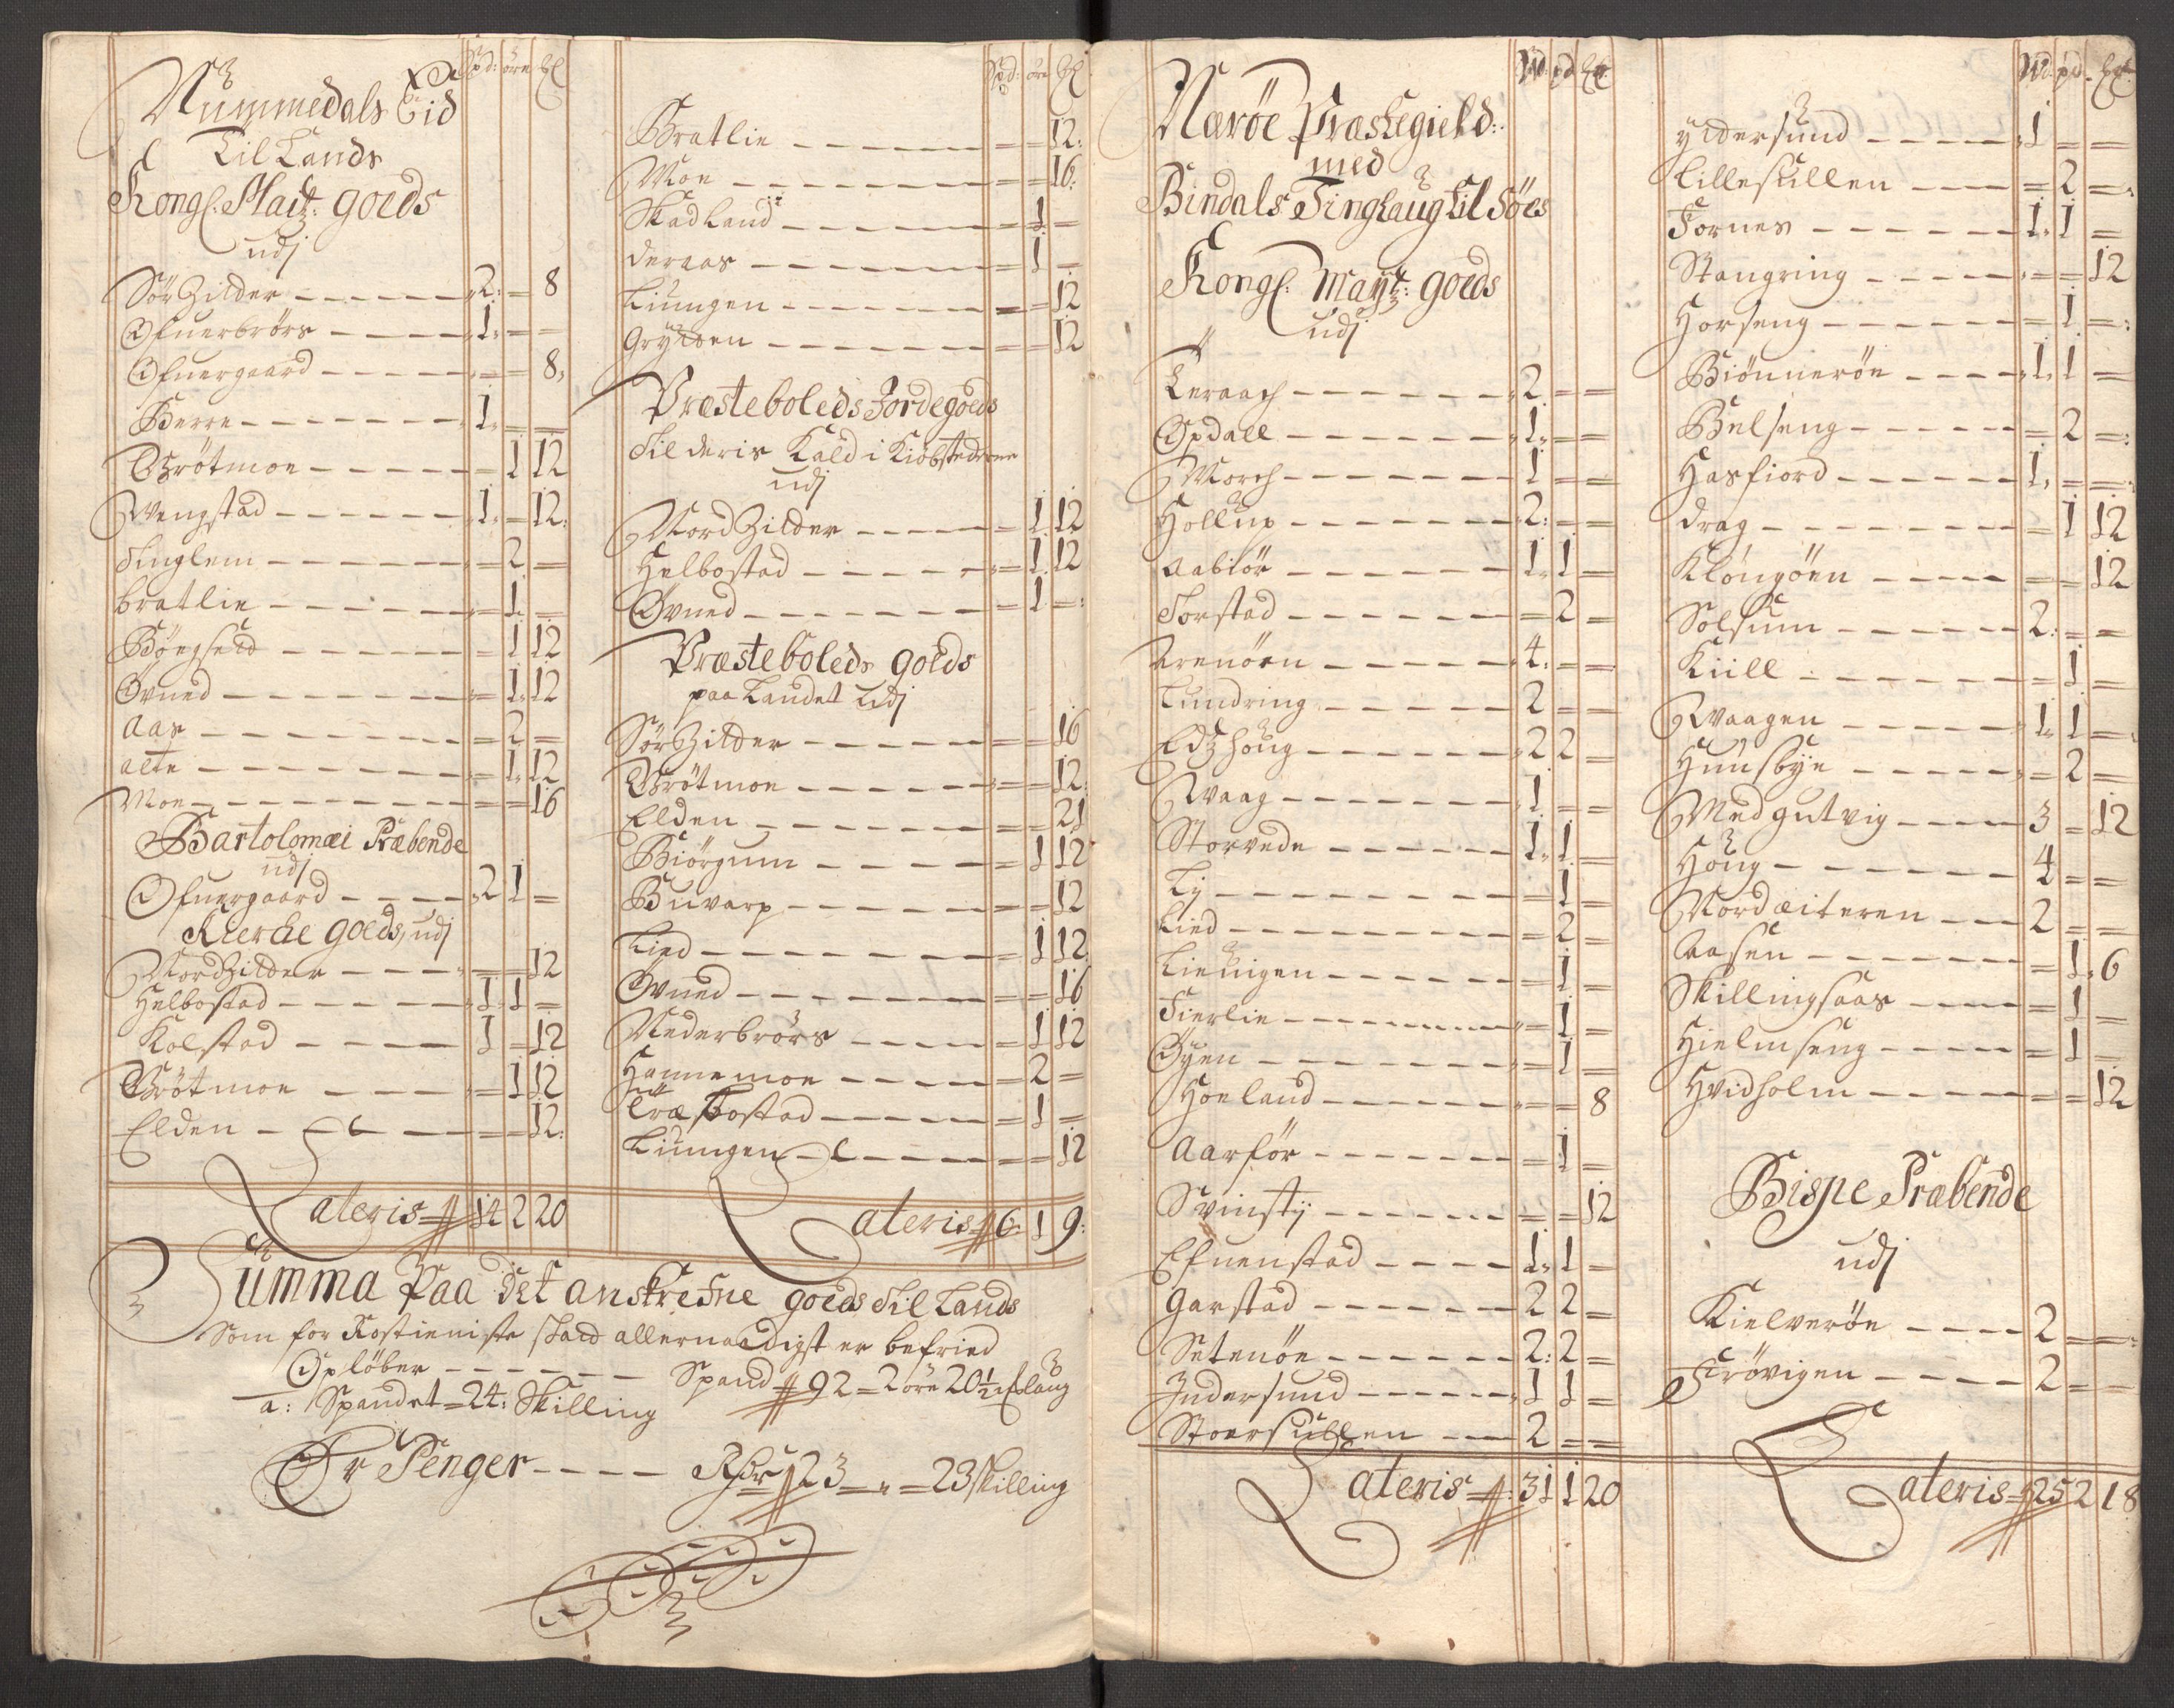 Spd: öre Ml
Nummedals Eid
Til Lands
Kongl. Maÿt: goeds
udj
Sör Zilder - - - - - - 2: = 8
Ofuerbrörs - - - - - 1. = =
Ofuergaard - - - - - = = 8,
Berre - - - - - - - 1. = =
Brötmoe - - - - - - = 1 12
Wengstad - - - - - - 1. = 12:
Tinglem - - - - - - = 2 =
bratlie - - - - - - = 1. =
Böegseld - - - - - = 1 12
Övned - - - - - - - = 1. 12
Aas - - - - - - - = 2 =
alte - - - - - - - = 1. 12
Moe - - - - - - - - = = 16
Bartolomæi Præbende
udj
Ofuergaard - - - - - 2 1 =
Kierche goeds, udj
Nord Zilder - - - - = = 12
Helbostad - - - - - 1 1 =
Kolstad - - - - 1 = 12
Brötmoe - - - - = 1 12
Elden - - - - = = 12:
Lateris 14 2 20
Spd: öre Ml
Bratlie - - - - - - = = 12:
Moe - - - - - - - = = 16:
Skadland - - - - - - = 1 =
deraas - - - - - - - = 1 =
Liungen - - - - - - = = 12
Grÿtten - - - - - - = = 12
Præsteboleds Jordegoeds
Til deris Kald i Kiöbstederne
udj
Nord Zilder - - - - - = 1 12
Helbostad - - - - - = 1. 12
Övned - - - - - - - = 1 =
Præsteboleds goeds
paa Landet Udj
Sör Zilder - - - - - = = 16
Brötmoe - - - - - - = = 12:
Elden - - - - - - - = = 21
Biörgum - - - - - = 1 12
Buvarp - - - - - - = = 12
Lied - - - - - - - = 1 12:
Övned - - - - - - - = = 16
Nederbrörs - - - - - = 1 12
Hannemoe - - - - - = 2 =
Træsbostad - - - - - = 1 =
Liungen - - - - - = = 12
Lateris 6: 1 9:
Summa Paa det anskrefne goeds til Lands
Som for Rostieniste skald allernaadigst er befried
Oplöber - - - - - - Spand 92 = 2 öre 20½ Mlaug
a: Spandet = 24: Skilling
Er Penger - - - - Rdr 23 = = 23 skilling
W: pd Ml
Næröe Præstegield:
med
Bindals Tinglaug til Söes
Kongl: Maÿt: goeds
udj
Teraach - - - - - - - 2 = =
Opdall - - - - - - - 1. = =
Morch - - - - - - - 1 = =
Hollup - - - - - - - 2: = =
Aabiör - - - - - - - 1. 1 =
Torstad - - - - - - - = 2 =
Arenöen - - - - - 4: = =
Lundring - - - - - - 2 = =
Edtzhoug - - - - - - 2 2 =
Waag - - - - - - - 1 = =
Storvede - - - - - - 1. 1 =
Lÿ - - - - - - - - = 1 =
Lied - - - - - - - - = 2 =
Lieungen - - - - - - = 1 =
Fierlie - - - - - - - = 1 =
Öyen - - - - - - - = 1 =
Hoeland - - - - - - = = 8
Aarför - - - - - - - = 1 =
Svinstÿ - - - - - - = = 12
Efuenstad - - - - 1. 1 =
Garstad - - - - - - 2 2 =
Setenöe - - - - - - 2: 2 =
Indersund - - - - - - 1 1 =
Stoersullen - - - 2 = =
Lateris 31 1 20
W: pd. Ml
ydersund - - - - - 1 = =
Lillesullen - - - - = 2 =
Fornes - - - - - - 1. 1 =
Stangring - - - - - = = 12
Horseng - - - - - - = 1 =
Biönneröe - - - - 1. 1 =
Belseng - - - - - - = 2 =
Hasfiord - - - - - - 1. = =
drag - - - - - - - = 1 12
Klongöen - - - - = = 12
Solsum - - - - - - 2: = =
Kiill - - - - - - = 1 =
Waagen - - - - - 1. 1 =
Huusbÿe - - - - - = 2 =
Med gutvig - - - - 3 = 12
Houg - - - - - - 4 = =
Nordæiteren - - - 2 = =
Aasen - - - - - - = 1. 6
Skillingsaas - - - - = 1 =
Hielmseng - - - - - = 1 =
Hvidholm - - - - - = = 12
Bispe Præbende
udj
Kielveröe - - - - 2 = =
Terövigen - - - - 2 = =
Lateris 25 2 18